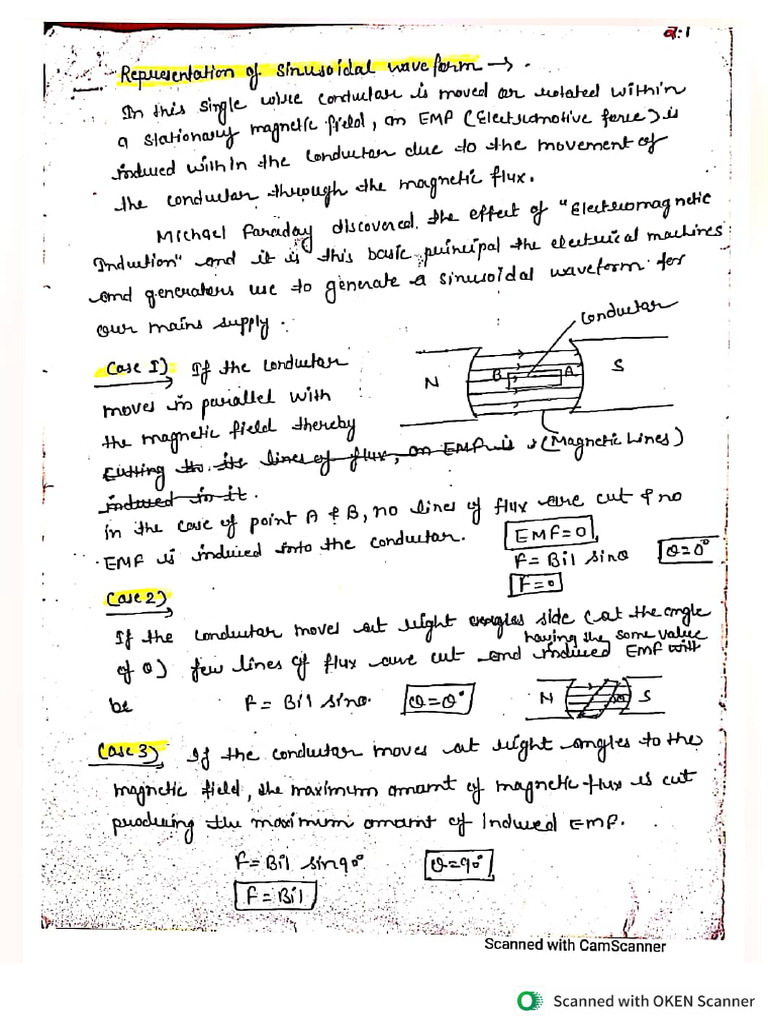 2:1
Representation of sinusoidal waveform →.
In this single wire conductor is moved or rotated within
a stationary magnetic field, an EMF (Electromotive force) is
induced within the conductor due to the movement of
the conductor through the magnetic flux.
Michael Faraday discovered the effect of "Electromagnetic
Induction" and it is this basic principal the electrical machines
and generators use to generate a sinusoidal waveform for
our mains supply.
Conductor
Case I) If the conductor
moves in parallel with
the magnetic field thereby
N B A S
cutting the its lines of flux, an EMF is
(Magnetic Lines)
induced in it.
in the case of point A & B, no lines of flux are cut & no
EMF is induced into the conductor.
EMF=0
F= Bil sinθ θ=0°
F=0
Case 2)
If the conductor moves at right angles side (at the angle
having the same value
of θ) few lines of flux are cut and induced EMF will
be F= Bil sinθ. θ=θ° N S
Case 3) If the conductor moves at right angles to the
magnetic field, the maximum amamt of magnetic flux is cut
producing the maximum amamt of induced EMF.
F= Bil sin90° θ=90°
F= Bil
Scanned with CamScanner
Scanned with OKEN Scanner